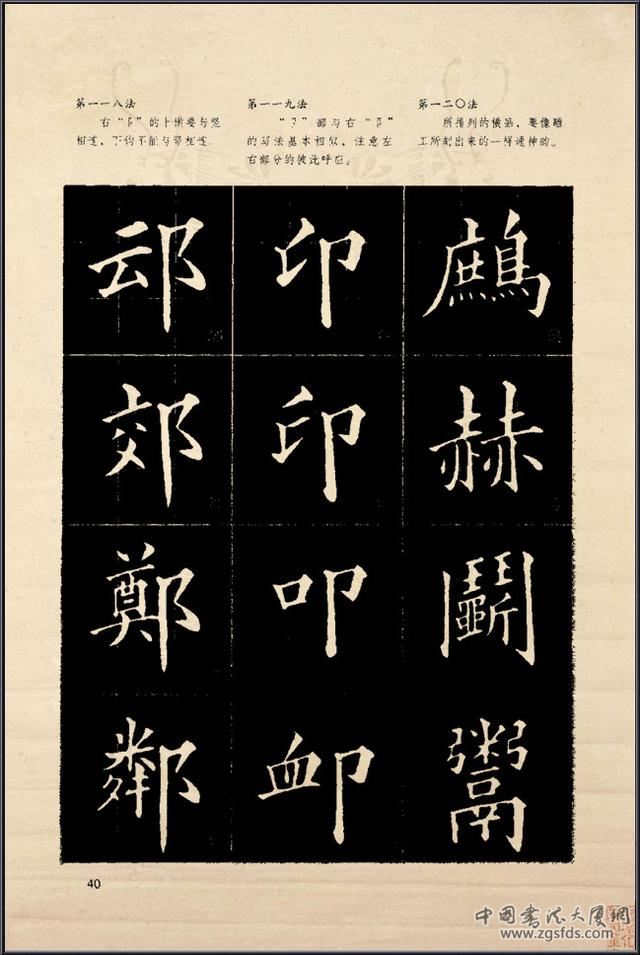 第一一八法
右“阝”的上撇要与竖
相连，下钩不能与竖相连。
第一一九法
“卩”部与右“阝”
的写法基本相似，注意左
右部分的彼此呼应。
第一二〇法
所排列的横画，要像雕
工所刻出来的一样通神的。
邙 印 鷓
郊 印 赫
鄭 叩 鬭
鄰 卹 鬻
40
中国书法大厦網
www.zgsfds.com